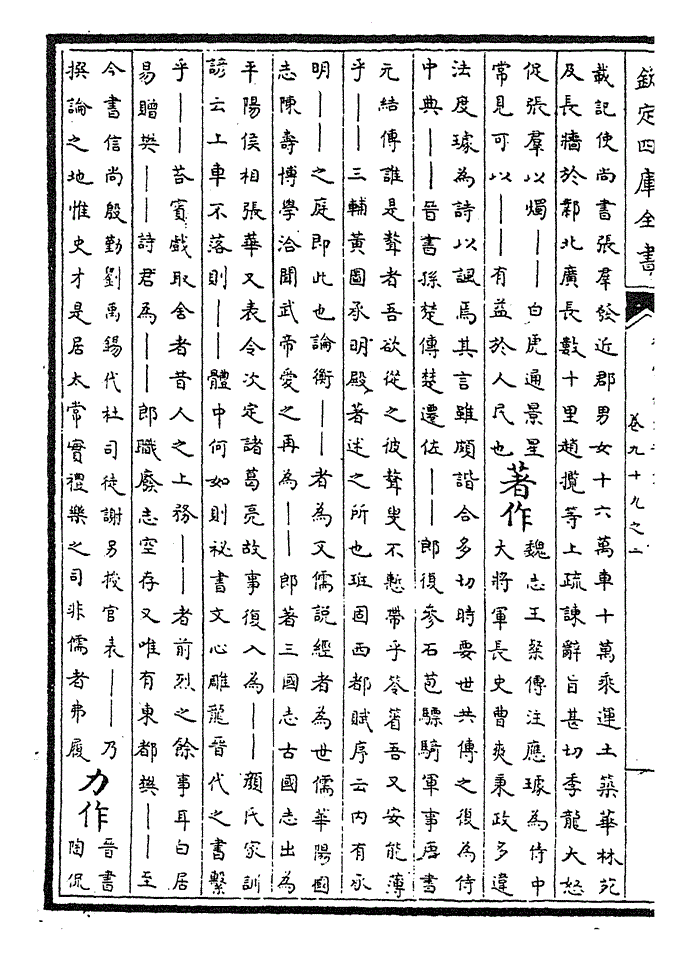 欽定四庫全書
卷九十九之二
載記使尚書張羣發近郡男女十六萬車十萬乘運土築華林苑
及長牆於鄴北廣長數十里趙攬等上疏諫辭旨甚切季龍大怒
促張羣以燭——白虎通景星
常見可以——有益於人民也
著作
魏志王粲傳注應璩為侍中
大將軍長史曹爽秉政多違
法度璩為詩以諷焉其言雖頗諧合多切時要世共傳之復為侍
中典——晉書孫楚傳楚遷佐——郎復參石苞驃騎軍事唐書
元結傳誰是聱者吾欲從之彼聱叟不慙帶乎笭箵吾又安能薄
乎——三輔黃圖承明殿著述之所也班固西都賦序云内有承
明——之庭即此也論衡——者為文儒說經者為世儒華陽國
志陳壽博學洽聞武帝愛之再為——郎著三國志古國志出為
平陽侯相張華又表令次定諸葛亮故事復入為——顔氏家訓
諺云上車不落則——體中何如則祕書文心雕龍晉代之書繫
乎——荅賓戲取舍者昔人之上務——者前烈之餘事耳白居
易贈樊——詩君為——郎職廢志空存又唯有東都樊——至
今書信尚殷勤劉禹錫代杜司徒謝男授官表——乃
撰論之地惟史才是居太常實禮樂之司非儒者弗履
力作
晉書
陶侃